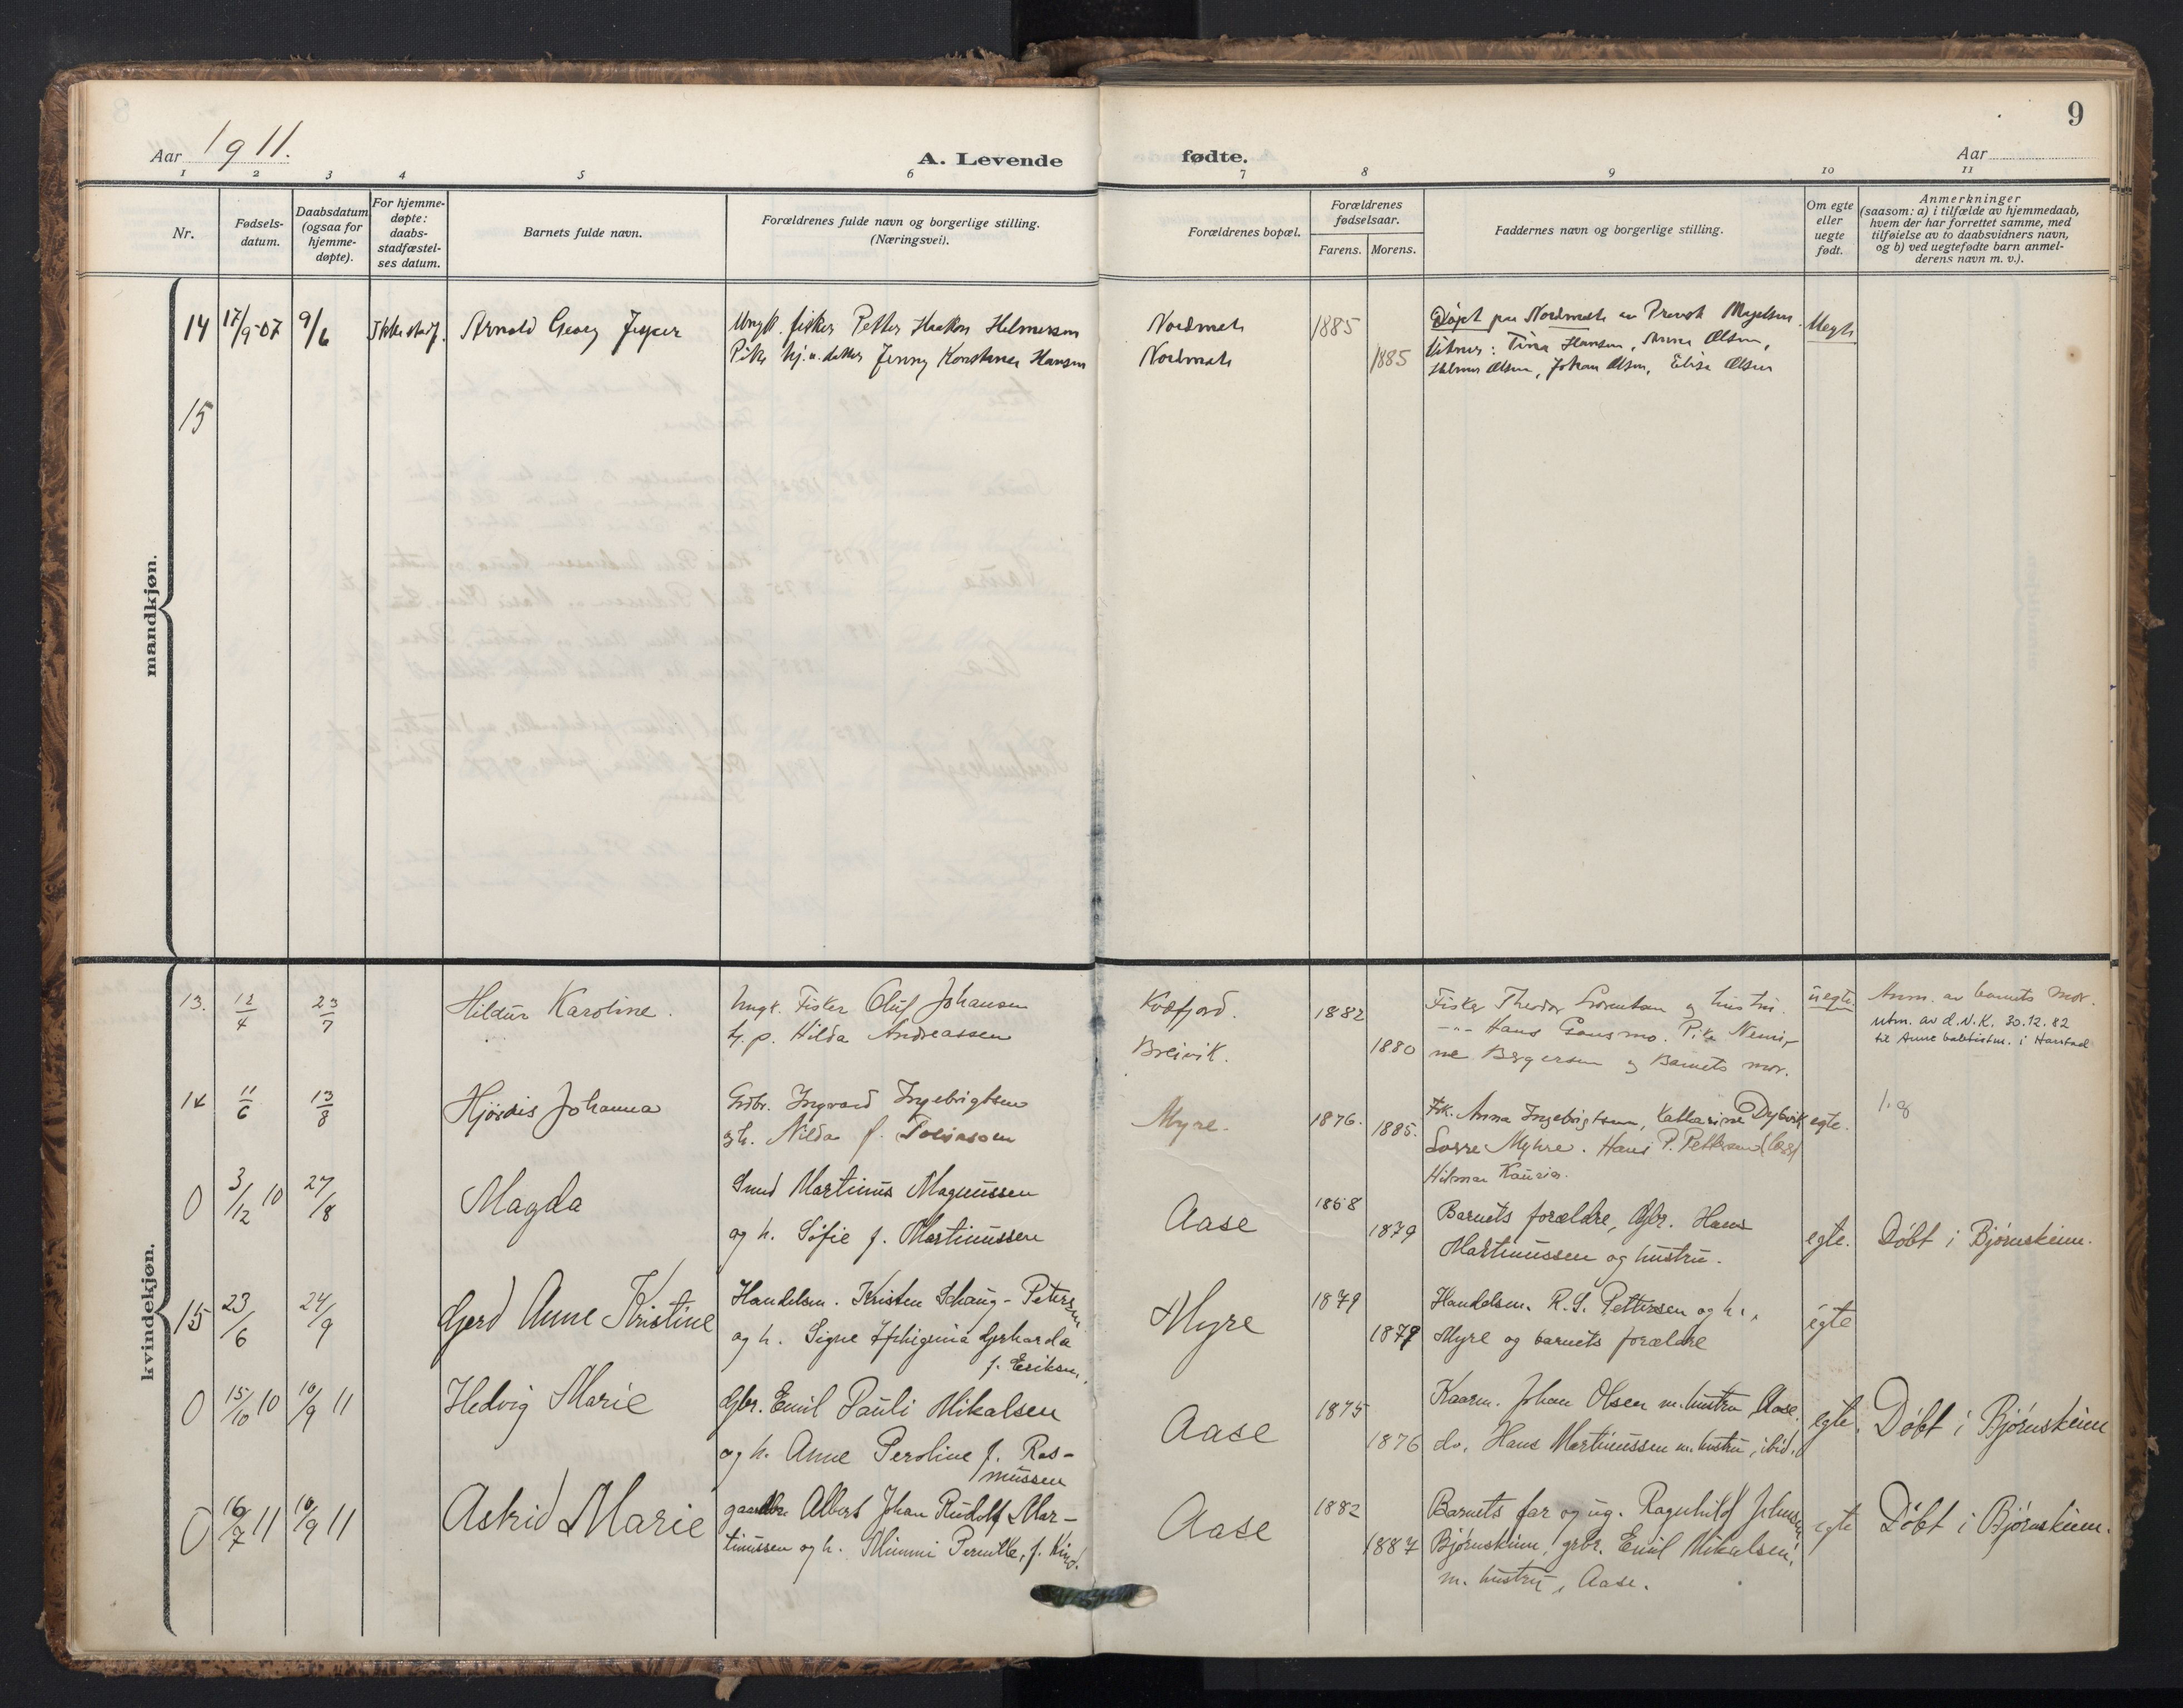 9
Aar 1911. A. Levende fødte. Aar
1 2 3 4 5 6 7 8 9 10 11
Nr. Fødsels-datum. Daabsdatum (ogsaa for hjemme-døpte). For hjemme-døpte: daabs-stadfæstel-ses datum. Barnets fulde navn. Forældrenes fulde navn og borgerlige stilling. (Næringsvei). Forældrenes bopæl. Forældrenes fødselsaar. Farens. Morens. Faddernes navn og borgerlige stilling. Om egte eller uegte født. Anmerkninger (saasom: a) i tilfælde av hjemmedaab, hvem der har forrettet samme, med tilføielse av to daabsvidners navn, og b) ved uegtefødte barn anmel-derens navn m. v.).
mandkjøn.
14 17/9-07 9/6 Ikke stadf. Arnold Georg Ungk. fisker Petter Haakon Helmersen Nordmek 1885 Døpt paa Uegte
Pike hj.v. datter Jenny Konstanse Hansen 1885 Vitner: Tina Hansen, Anna Olsen,
Helmer Olsen, Johan Olsen, Elise Olsen
15
kvindekjøn.
13. 12/4 23/7 Hildur Karoline. Ungk. Fisker Oluf Johansen Kvæfjord. 1882 Fisker Theodor og hustru. uegte Anm. av barnets mor.
t.p. Hilda Andreassen Breivik. 1880 -"- Hans Pike Nemi-
ne Bergersen og Barnets mor.
utm. av d.N.K. 30.12.82
til i Harstad
14 11/6 13/8 Hjördis Johanna Grdbr. Ingvard Ingebrigtsen Myre. 1876. 1885. Frk. Anna Ingebrigtsen, Katharine Dybvik egte.
gh. Nilda f. Tobiassen Myhre. Hans P. Pettersen
Hilmar
0 3/12 10 27/8 Magda Martinus Magnussen Aase 1868 Barnets forældre, Gbr. Hans
og h. Sofie f. Martinussen 1879 Martinussen og hustru. egte. Döbt i Bjørnskinn.
15 23/6 24/9 Gjerd Anne Kristine Handelsm. Kristen Schaug-Petersen Myre 1879 Handelsm. R.S. Pettersen og h.,
og h. Signe Ifhigenia Gerharda 1879 Myre og barnets forældre egte
f. Eriksen,
0 15/10 10 10/9 11 Hedvig Marie Gbr. Emil Pauli Mikalsen Aase 1875 Kaarm. Johan Olsen m. hustru Aase. egte. Döbt i Bjørnskinn
og h. Anne Peroline f. Ras- 1876 do. Hans Martinussen m. hustru, ibid.
mussen
0 16/7 11 10/9 11 Astrid Marie gaardbr. Albert Johan Rudolf Mar- Aase 1882 Barnets far og ug. Ragnhild Johnsen egte Döbt i Bjørnskinn.
tinussen og h. Mimmi Pernille, f. Kind. 1887 Bjørnskinn, grbr. Emil Mikalsen,
m. hustru, Aase.